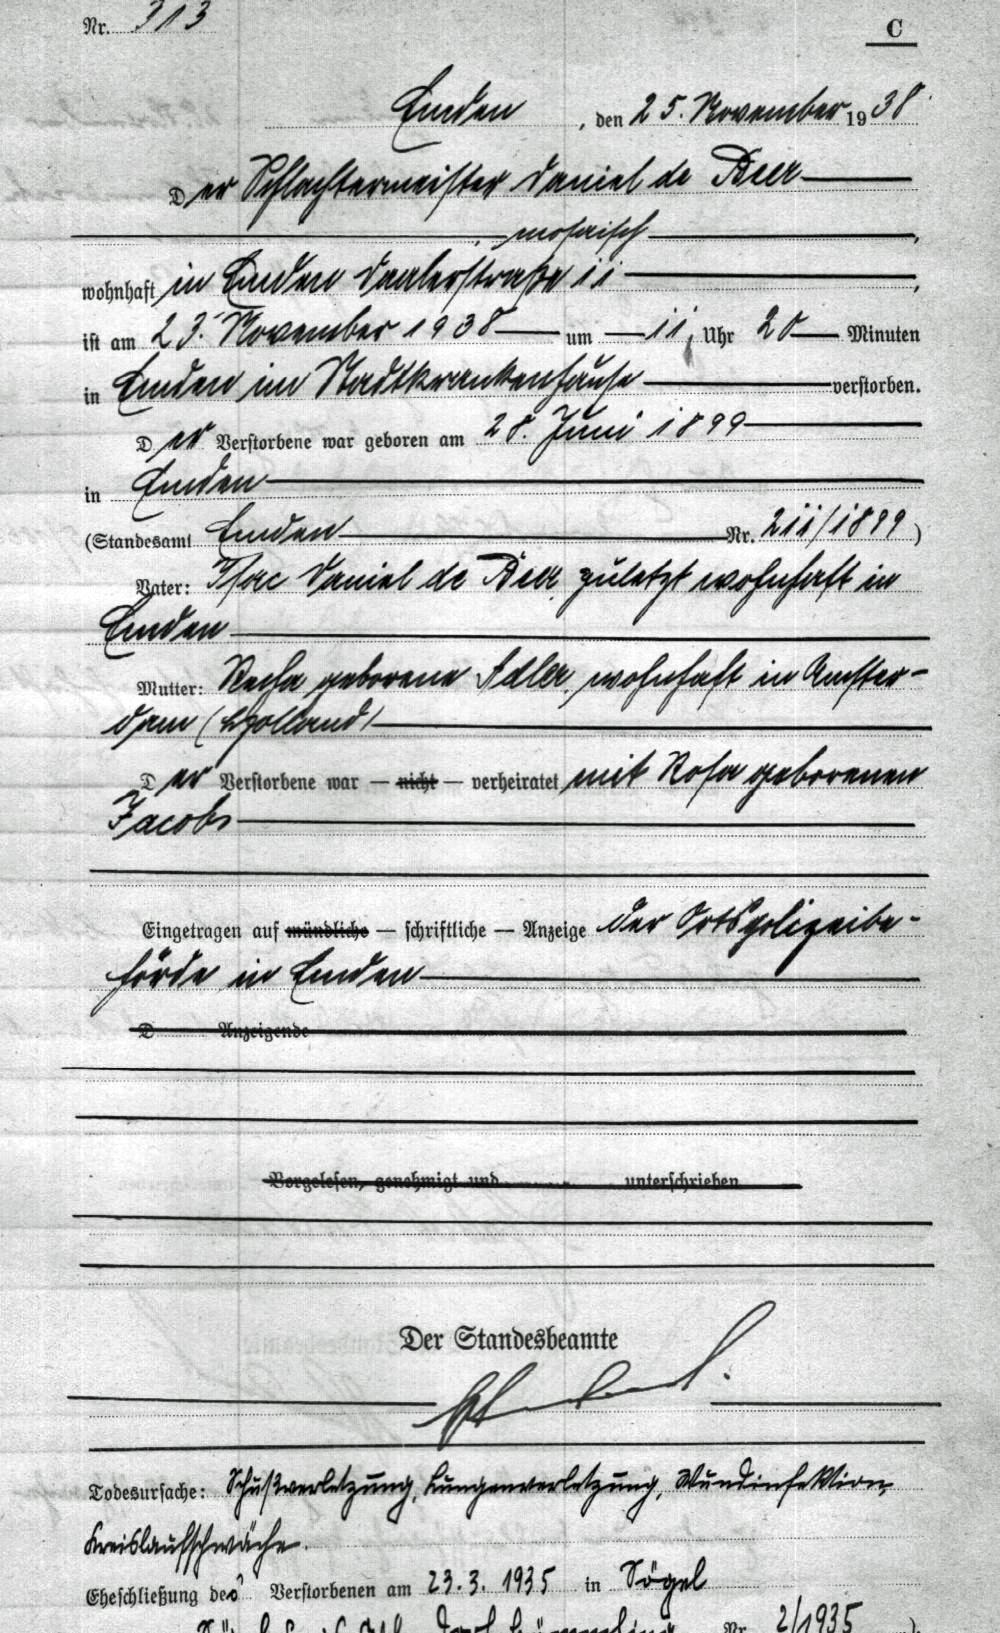 Nr. 313
C
Emden, den 25. November 1938
Der Schlachtermeister Daniel de Beer
, mosaisch,
wohnhaft in Emden Daalerstraße 11,
ist am 23. November 1938 um 11 Uhr 20 Minuten
in Emden im Stadtkrankenhause verstorben.
Der Verstorbene war geboren am 28. Juni 1899
in Emden
(Standesamt Emden Nr. 211/1899)
Vater: Isac Daniel de Beer, zuletzt wohnhaft in
Emden
Mutter: Recha geborene Adler, wohnhaft in Amster-
dam (Holland)
Der Verstorbene war — nicht — verheiratet mit Rosa geborenen
Jacobs
Eingetragen auf mündliche — schriftliche — Anzeige der Ortspolizeibe-
hörde in Emden
D Anzeigende
Vorgelesen, genehmigt und unterschrieben
Der Standesbeamte
Todesursache: Schußverletzung, Lungenverletzung, Wundinfektion,
Kreislaufschwäche.
Eheschließung des Verstorbenen am 23.3.1935 in Sögel
Nr. 2/1935